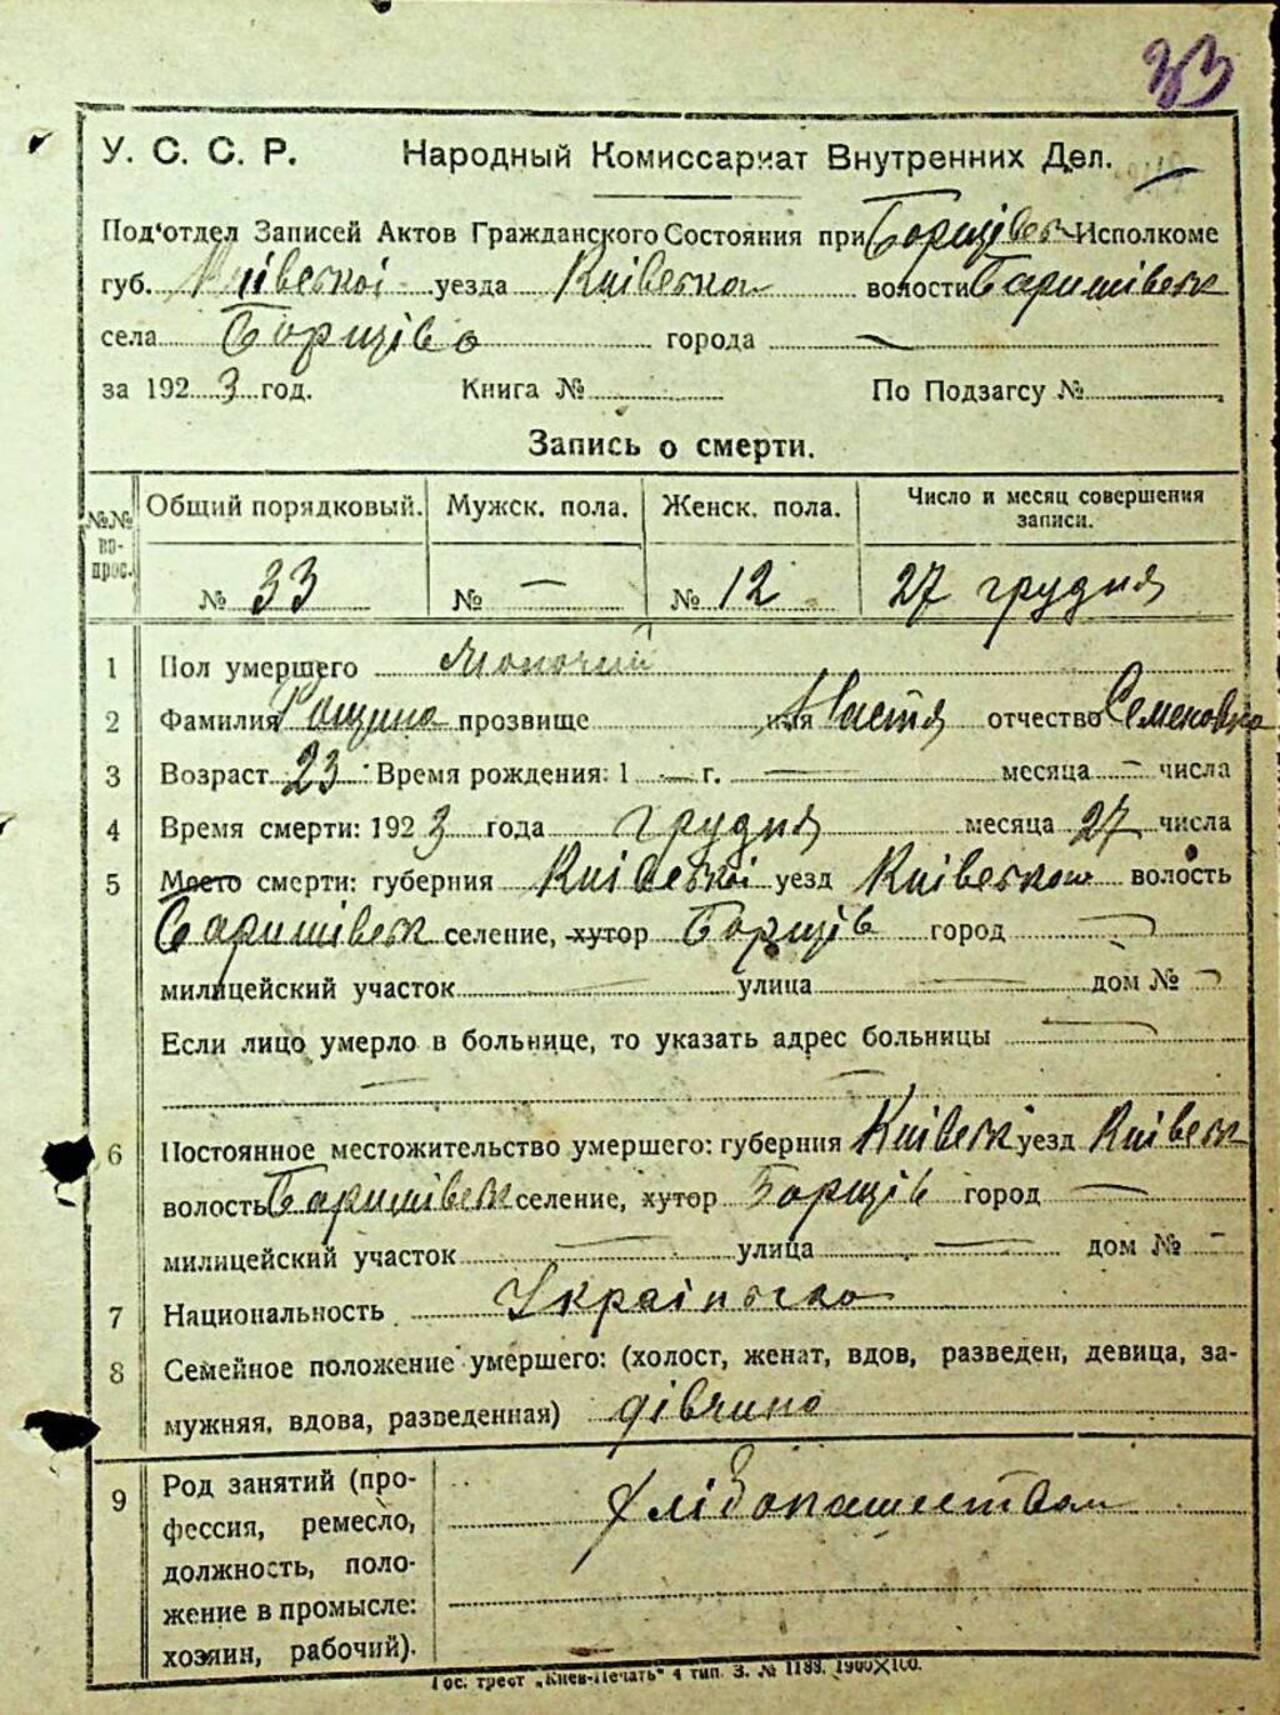 33
У. С. С. Р. Народный Комиссариат Внутренних Дел.
Под'отдел Записей Актов Гражданского Состояния при Борщівськ Исполкоме
губ. Київської уезда Київського волости Баришівськ
села Борщів города —
за 1923 год. Книга № По Подзагсу №
Запись о смерти.
№№ вопрос. Общий порядковый. Мужск. пола. Женск. пола. Число и месяц совершения записи.
№ 33 № — № 12 27 грудня
1 Пол умершего
2 Фамилия прозвище имя Настя отчество Семеновна
3 Возраст 23 Время рождения: 1 — г. — месяца — числа
4 Время смерти: 1923 года грудня месяца 27 числа
5 Место смерти: губерния Київської уезд Київського волость
Баришівськ селение, хутор Борщів город —
милицейский участок — улица — дом № —
Если лицо умерло в больнице, то указать адрес больницы —
— —
6 Постоянное местожительство умершего: губерния Київськ уезд Київськ
волость Баришівськ селение, хутор Борщів город —
милицейский участок — улица — дом № —
7 Национальность
8 Семейное положение умершего: (холост, женат, вдов, разведен, девица, за-
мужняя, вдова, разведенная) дівчина
9 Род занятий (про-
фессия, ремесло,
должность, поло-
жение в промысле:
хозяин, рабочий).
Хлібопашеством
Гос. трест „Киев-Печать" 4 тип. З. № 1188. 1900X100.